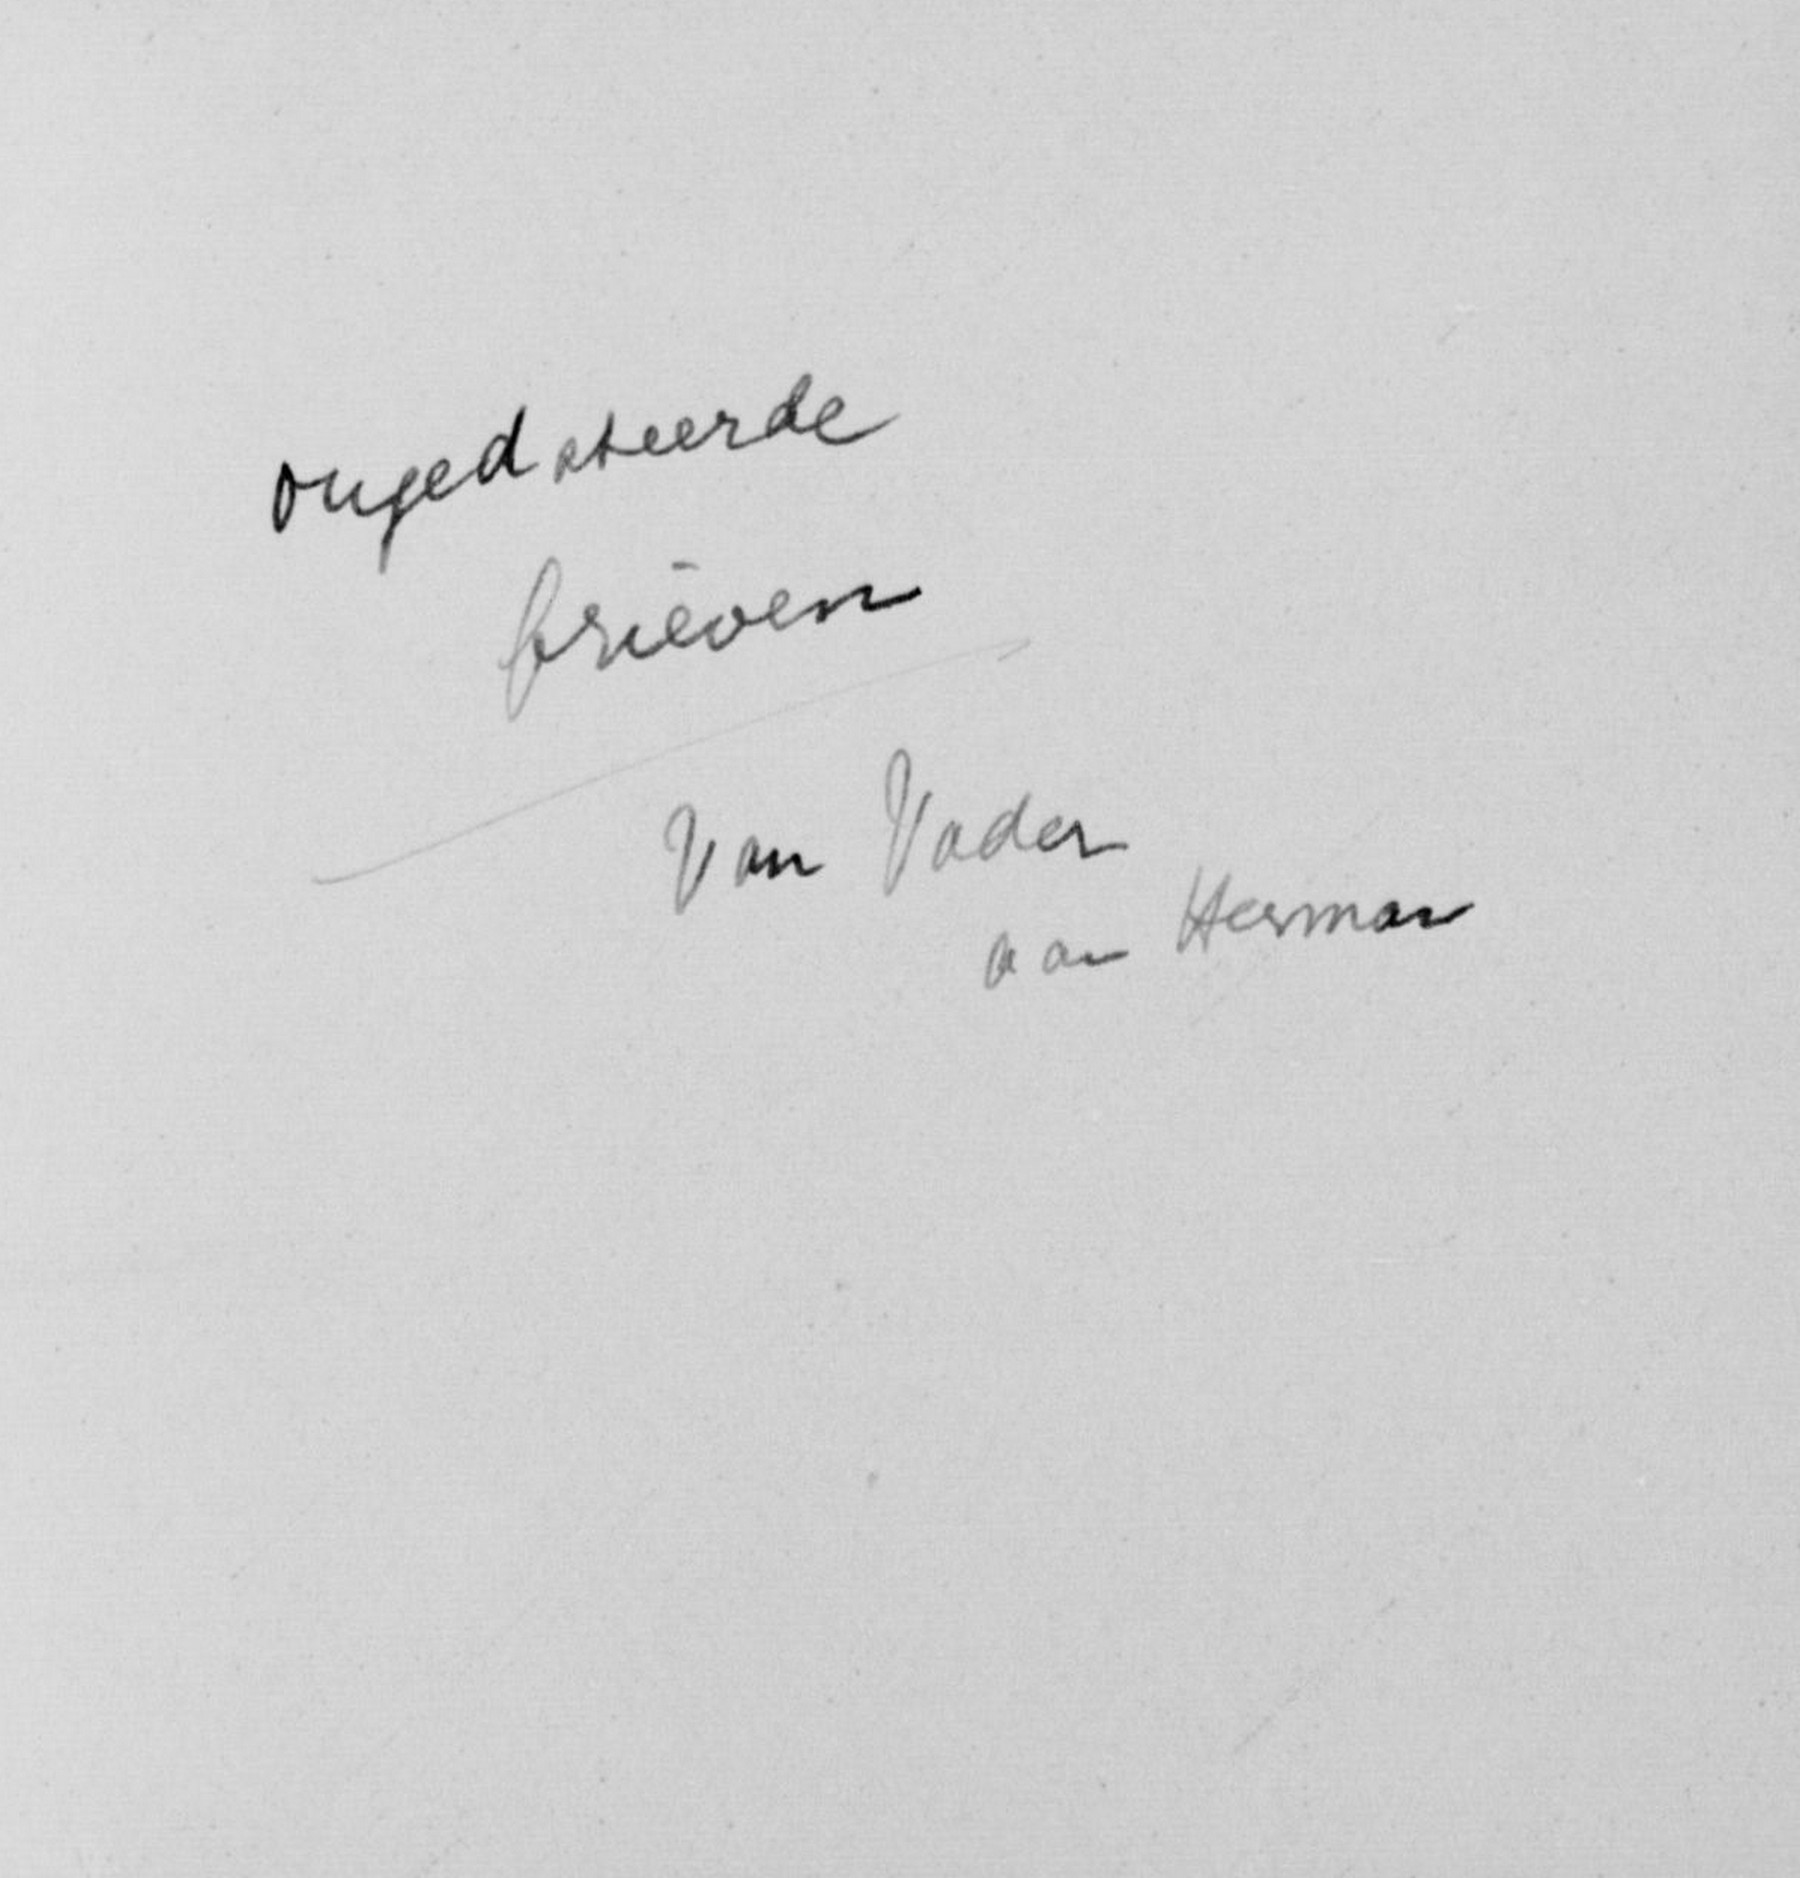 ongedateerde
brieven
Van Vader
aan Herman